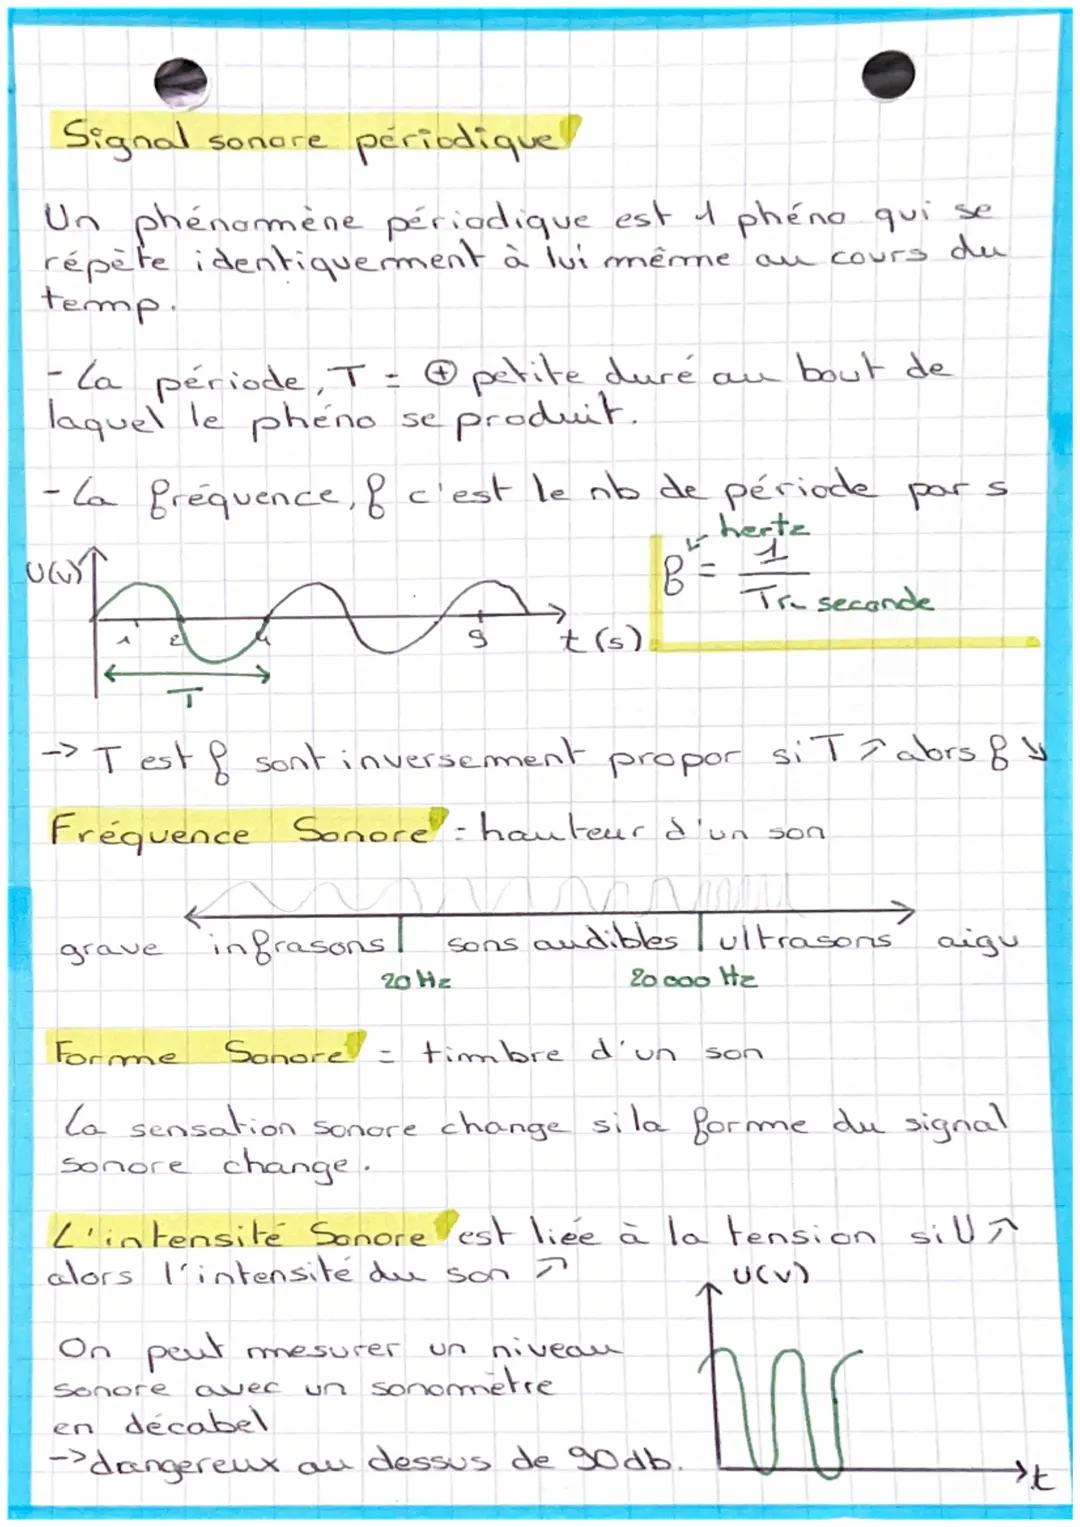 Signal sonore périodique
Un phénomène périodique est 1 phéno qui se
répète identiquement à lui même au cours du
temp.
- La période, T = ⊕ petite duré au bout de
laquel le phéno se produit.
- La fréquence, f c'est le nb de période par s
hertz
U(v)
f = 1/T
seconde
1 2 4 9 t (s)
T
-> T est f sont inversement propor si T ↗ alors f ↘
Fréquence Sonore = hauteur d'un son
grave infrasons sons audibles ultrasons aigu
20 Hz 20 000 Hz
Forme Sonore = timbre d'un son
La sensation sonore change si la forme du signal
sonore change.
L'intensité Sonore est liée à la tension si U ↗
alors l'intensité du son ↗
U(v)
On peut mesurer un niveau
sonore avec un sonomètre
en décabel
-> dangereux au dessus de 90db.
t